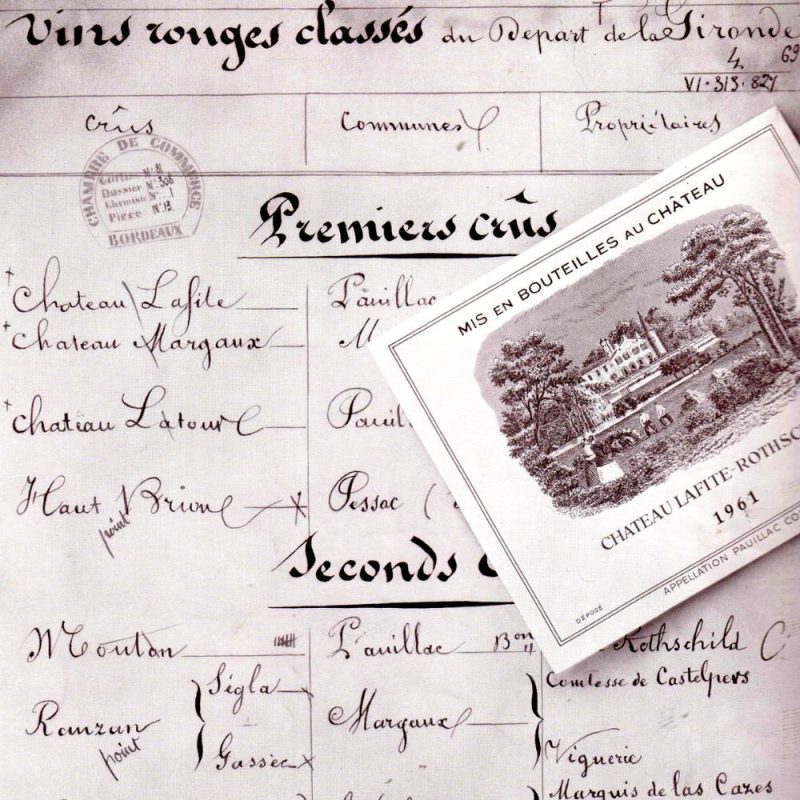 Vins rouges classés du Départ de la Gironde
4 69
VI.313.827
crûs Communes Propriétaires
CHAMBRE DE COMMERCE
Carton N° 81
Dossier N° 308
Chemise N° 1
Pièce N° 13
BORDEAUX
Premiers crûs
Chateau Lafite Pauillac
Chateau Margaux M
Chateau Latour Pauil
Haut Brion Pessac (
point
MIS EN BOUTEILLES AU CHÂTEAU
CHATEAU LAFITE-ROTHSC
1961
DÉPOSÉ
APPELLATION PAUILLAC CO
Seconds C
Mouton Pauillac Bon Rothschild
Comtesse de Castelpers
Ségla
Rauzan Margaux
point
Gassies Viguerie
Marquis de las Cazes